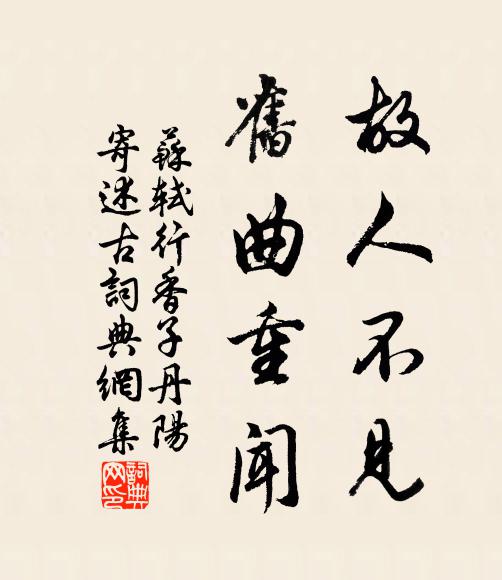 故人不見
舊曲重聞
蘇軾行香子丹陽
寄述古詞典網集
詞典网印